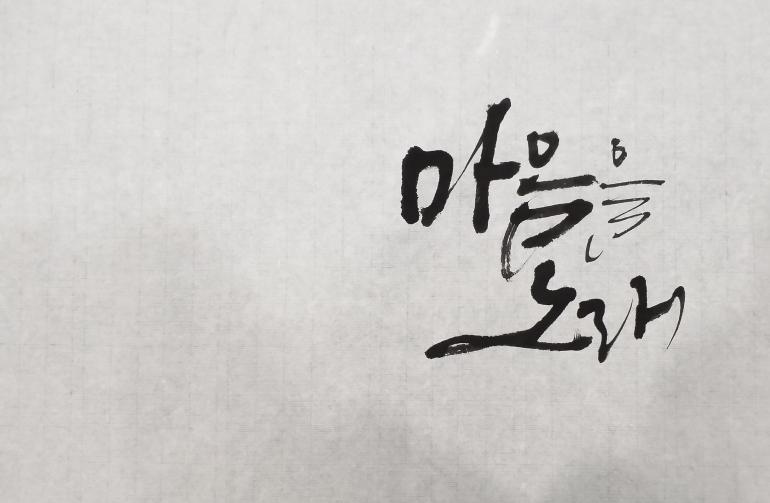 마음을
노래